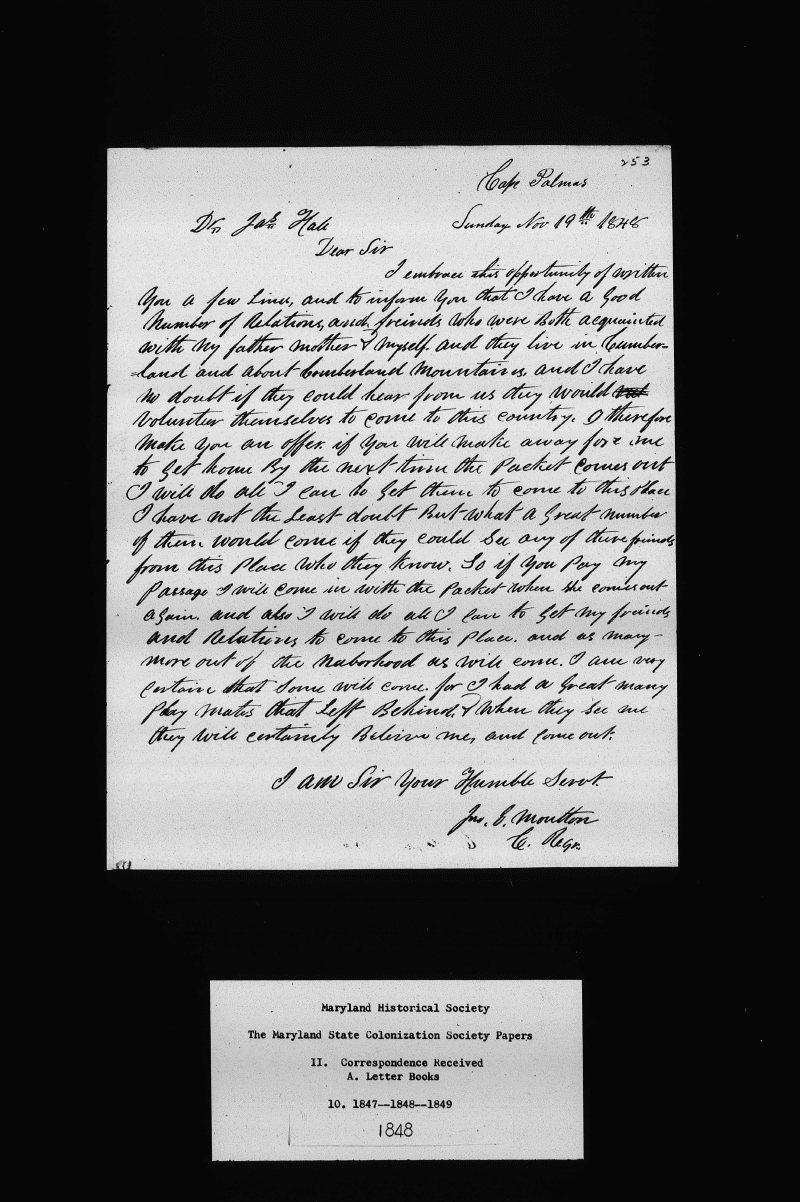 253
Cape Palmas
Dr. Jas. Hall Sunday Nov 19th 1848
Dear Sir
I embrace this opportunity of written
You a few Lines, and to inform You that I have a Good
Number of Relations, and freinds who were Both acquainted
with My father mother & myself. and they live in Cumber-
=land and about Cumberland Mountains, and I have
no doubt if they could hear from us they would
Volunteer themselves to come to this country. I therefore
Make You an offer. if You will make away for me
to Get home By the next time the Packet comes out
I will do all I can to Get them to come to this Place
I have not the Least doubt But what a Great number
of them would come if they could See any of there freinds
from this Place who they know. So if You Pay my
Passage I will come in with the Packet when she comes out
again. and also I will do all I can to Get My freinds
and Relations to come to this Place. and as many-
more out of the Naborhood as will come. I am very
certain that Some will come. for I had a Great many
Play Mates that Left Behind, & When they See me
they will certainly Beleive me, and Come out.
I am Sir Your Humble Servt.
Jno. E. Moulton
C. Regr.
Maryland Historical Society
The Maryland State Colonization Society Papers
II. Correspondence Received
A. Letter Books
10. 1847--1848--1849
1848